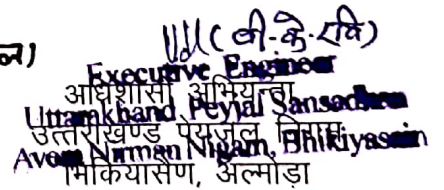 ल)
(वी.के.रवि)
Executive Engineer
अधिशासी अभियन्ता
Uttarakhand Peyjal Sansadhan
उत्तराखण्ड पेयजल निगम
Avom Nirman Nigam, Bhikiyasain
भिकियासैंण, अल्मोड़ा